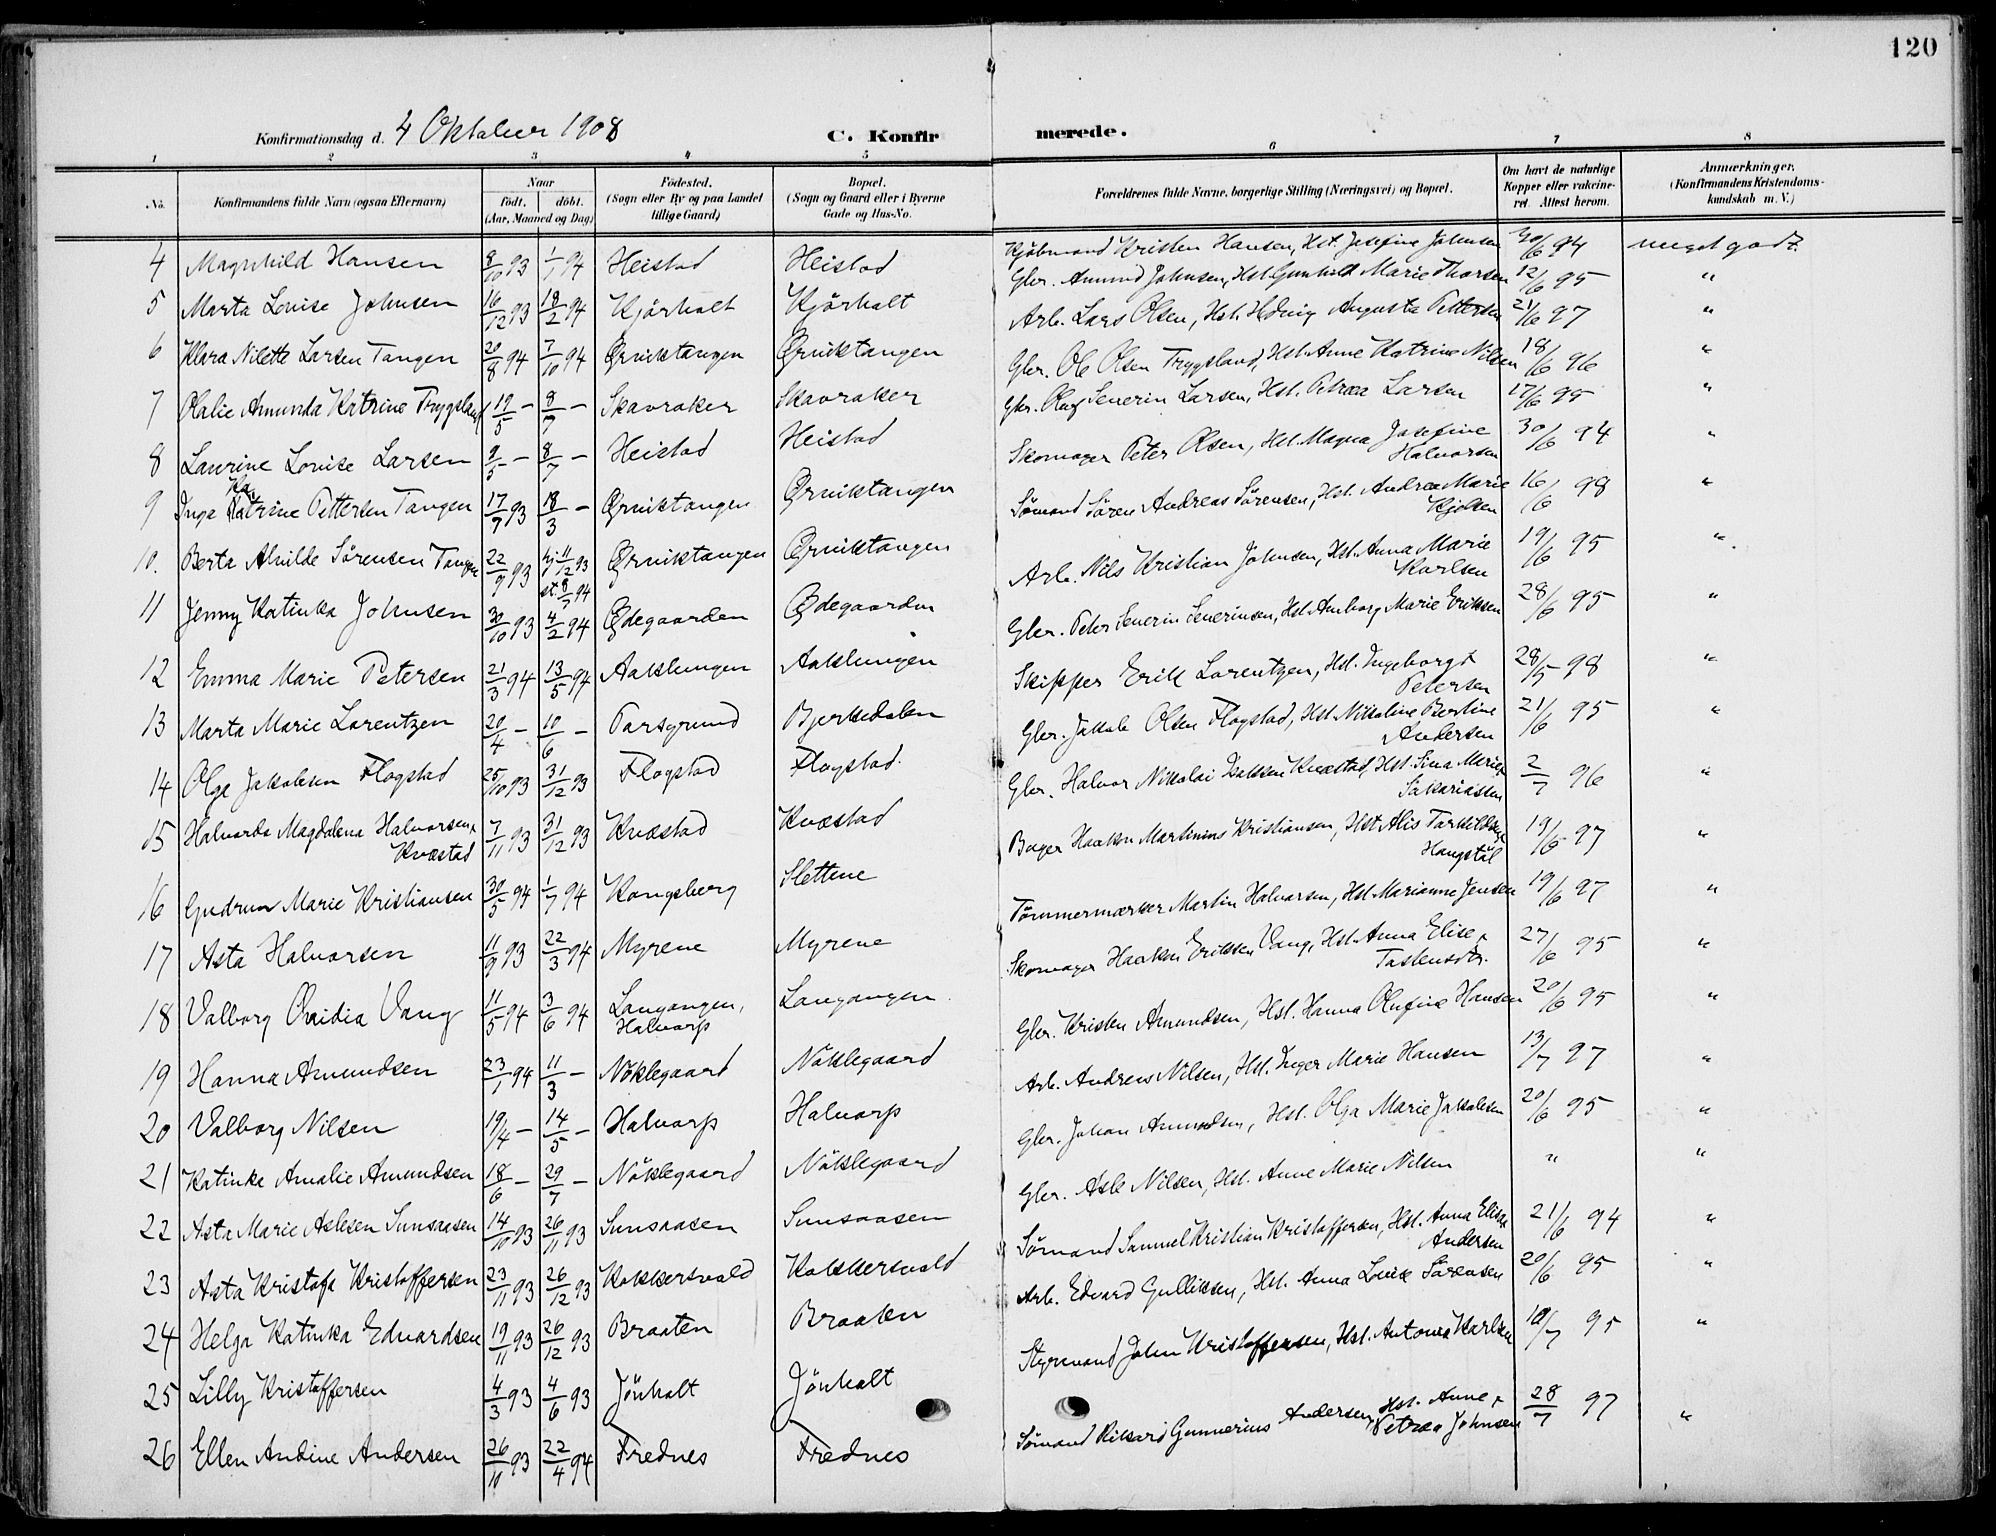 120
Konfirmationsdag d. 4 Oktober 1908 C. Konfirmerede.
1 2 3 4 5 6 7 8
No. Konfirmandens fulde Navn (ogsaa Efternavn) Naar født. døbt. (Aar, Maaned og Dag) Fødested. (Sogn eller By og paa Landet tillige Gaard) Bopæl. (Sogn og Gaard eller i Byerne Gade og Hus-No. Forældrenes fulde Navne, borgerlige Stilling (Næringsvei) og Bopæl. Om havt de naturlige Kopper eller vakcineret. Attest herom. Anmærkninger. (Konfirmandens Kristendomskundskab m. V.)
4 Magnhild Hansen 8/10 93 1/1 94 Heistad Heistad Kjøbmand Kristen Hansen, Hst. Josefine Johnsen 30/6 94 meget godt.
5 Marta Louise Johnsen 16/12 93 18/2 94 Kjørholt Kjørholt Gbr. Amund Johnsen, Hst. Gunhild Marie Thorsen 12/6 95 "
6 Klara Nilette Larsen Tangen 20/8 94 7/10 94 Ørviktangen Ørviktangen Arb. Lars Olsen, Hst. Hedvig Augusta Pettersen 21/6 97 "
7 Olalie Amunda Katrine Trygsland 19/5 - 8/7 - Skavraker Skavraker Gbr. Ole Olsen Trygsland, Hst. Anne Katrine Nilsen 18/6 96 "
8 Laurine Louise Larsen 9/5 - 8/7 - Heistad Heistad Gbr. Oluf Severin Larsen, Hst. Petrea Larsen 17/6 95 "
9 Inga Katrine Pettersen Tangen 17/7 93 18/3 - Ørviktangen Ørviktangen Skomager Peter Olsen, Hst. Magna Josefine Halvorsen 30/6 94 "
10. Berta Alvilde Sørensen Tangen 22/9 93 hj 11/12 93 st. 8/7 94 Ørviktangen Ørviktangen Sømand Søren Andreas Sørensen, Hst. Andrea Marie Kjølsen 16/6 98 "
11 Jenny Katinka Johnsen 30/10 93 4/2 94 Ødegaarden Ødegaarden Arb. Nils Kristian Johnsen, Hst. Anna Marie Karlsen 19/6 95 "
12 Emma Marie Petersen 21/3 94 13/5 94 Aaklungen Aaklungen Gbr. Peter Severin Severinsen, Hst. Amborg Marie Eriksen 28/6 95 "
13 Marta Marie Lorentzen 20/4 - 10/6 - Porsgrund Bjerkedalen Skipper Erik Lorentzen, Hst. Ingeborg Petersen 28/5 98 "
14 Olga Jakobsen Flogstad 25/10 93 31/12 93 Flogstad Flogstad. Gbr. Jakob Olsen Flogstad, Hst. Nikoline Bertine Andersen 21/6 95 "
15 Halvorda Magdalena Halvorsen Kvæstad 7/11 93 31/12 93 Kvæstad Kvæstad Gbr. Halvor Nikolai Isaksen Kvæstad, Hst. Sina Marie Sakariassen 2/7 96 "
16 Gudrun Marie Kristiansen 30/5 94 1/7 94 Kongsberg Slettene Bager Haakon Martinius Kristiansen, Hst. Alis Torkildsen Haugstøl 19/6 97 "
17 Asta Halvorsen 11/9 93 22/3 94 Myrene Myrene Tømmermærker Martin Halvorsen, Hst. Marianne Jensen 19/6 97 "
18 Valborg Ovidia Vang 11/5 94 3/6 94 Langangen, Halvarp Langangen Skomager Haakon Eriksen Vang, Hst. Anna Elise Taslensdtr. 27/6 95 "
19 Hanna Amundsen 23/1 94 11/3 - Nøklegaard Nøklegaard Gbr. Kristen Amundsen, Hst. Hanna Olufine Hansen 20/6 95 "
20 Valborg Nilsen 19/4 - 14/5 - Halvarp Halvarp Arb. Andreas Nilsen, Hst. Inger Marie Hansen 13/7 97 "
21 Katinka Amalie Amundsen 18/6 - 29/7 - Nøklegaard Nøklegaard Gbr. Johan Amundsen, Hst. Olga Marie Jakobsen 20/6 95 "
22 Asta Marie Aslesen Sunsaasen 14/10 93 26/11 93 Sunsaasen Sunsaasen Gbr. Asle Nilsen, Hst. Anne Marie Nilsen " "
23 Asta Kristofa Kristoffersen 23/11 93 26/12 93 Kokkersvold Kokkersvold Sømand Samuel Kristian Kristoffersen, Hst. Anna Elise Andersen 21/6 94 "
24 Helga Katinka Edvardsen 19/11 93 26/12 93 Braaten Braaten Arb. Edvard Gulliksen, Hst. Anna Louise Sørensen 20/6 95 "
25 Lilly Kristoffersen 4/3 93 4/6 93 Jønholt Jønholt Styrmand John Kristoffersen, Hst. Antonia Karlsen 10/7 95 "
26 Ellen Andine Andersen 26/10 93 22/4 94 Frednes Frednes Sømand Rikard Gunnerius Andersen, Hst. Anne Petrea Johnsen 28/7 97 "